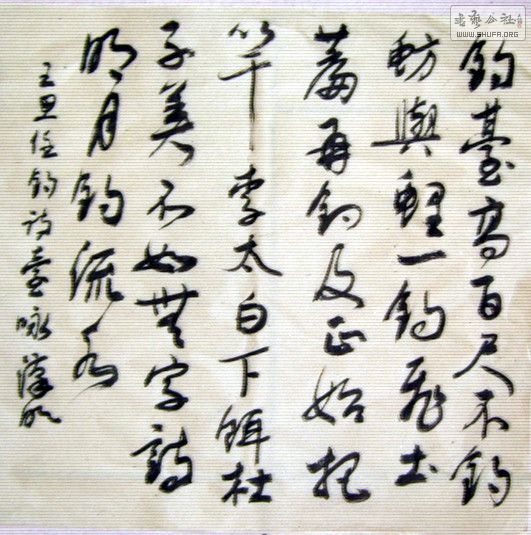 釣臺高百尺不釣
魴與鯉一釣飛土
蕃再釣及正始把
竿李太白下餌杜
子美不如無字詩
明月釣流水
王思任釣詩臺詠
書藝公社
WWW.SHUFA.ORG